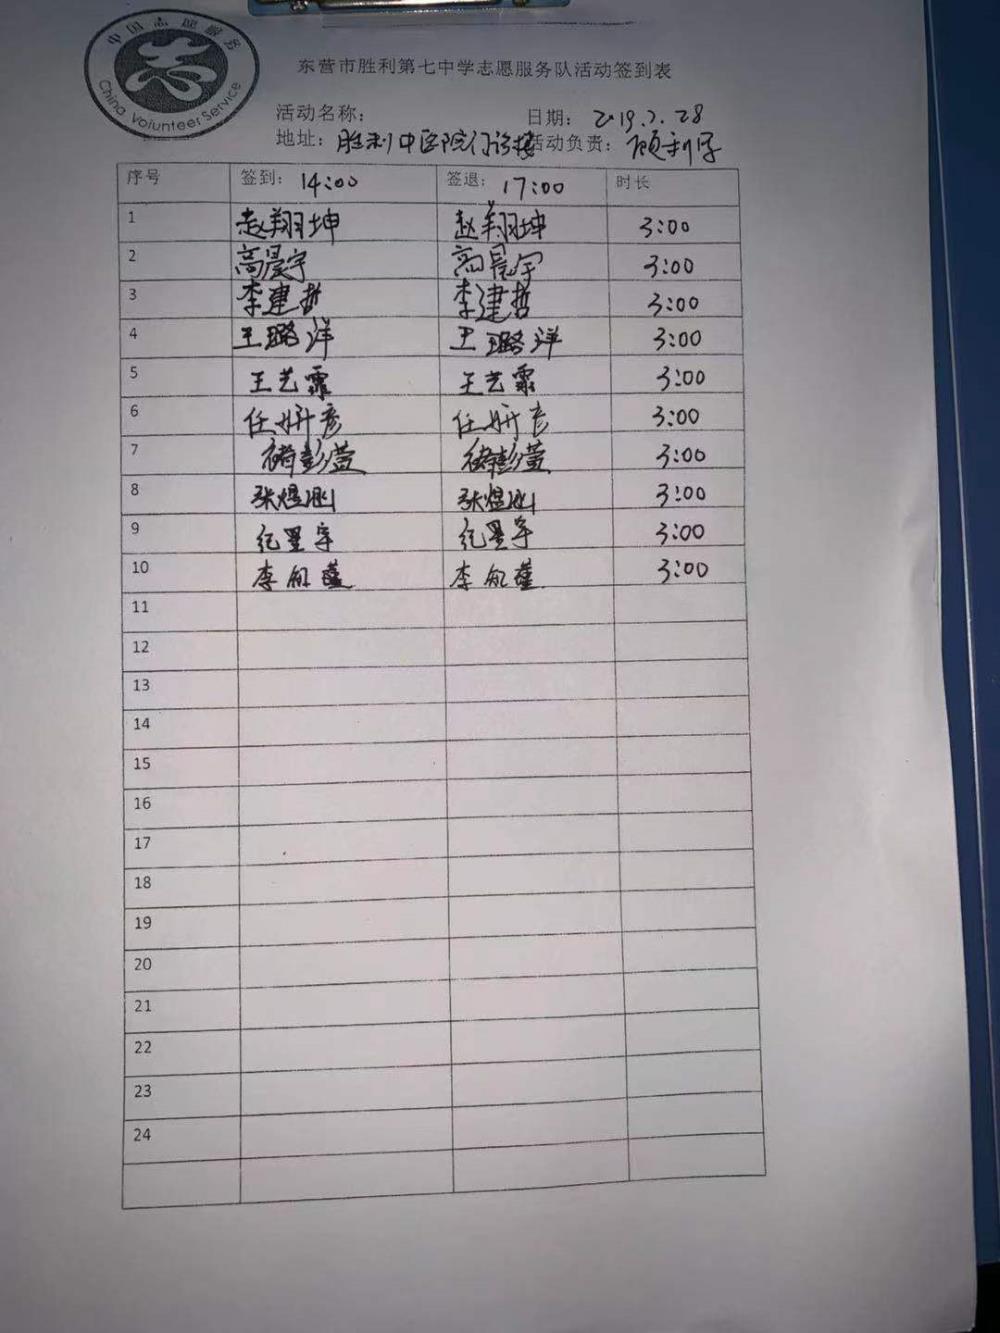 中国志愿服务
China Volunteer Service
东营市胜利第七中学志愿服务队活动签到表
活动名称: 日期: 2019.7.28
地址: 胜利中医院门诊楼 活动负责:
序号 签到: 14:00 签退: 17:00 时长
1 赵翔坤 赵翔坤 3:00
2 高晨宇 高晨宇 3:00
3 李建哲 李建哲 3:00
4 王璐洋 王璐洋 3:00
5 王艺霖 王艺霖 3:00
6 任妍彦 任妍彦 3:00
7 褚彭萱 褚彭萱 3:00
8 张煜 张煜 3:00
9 纪星宇 纪星宇 3:00
10 李 李 3:00
11
12
13
14
15
16
17
18
19
20
21
22
23
24